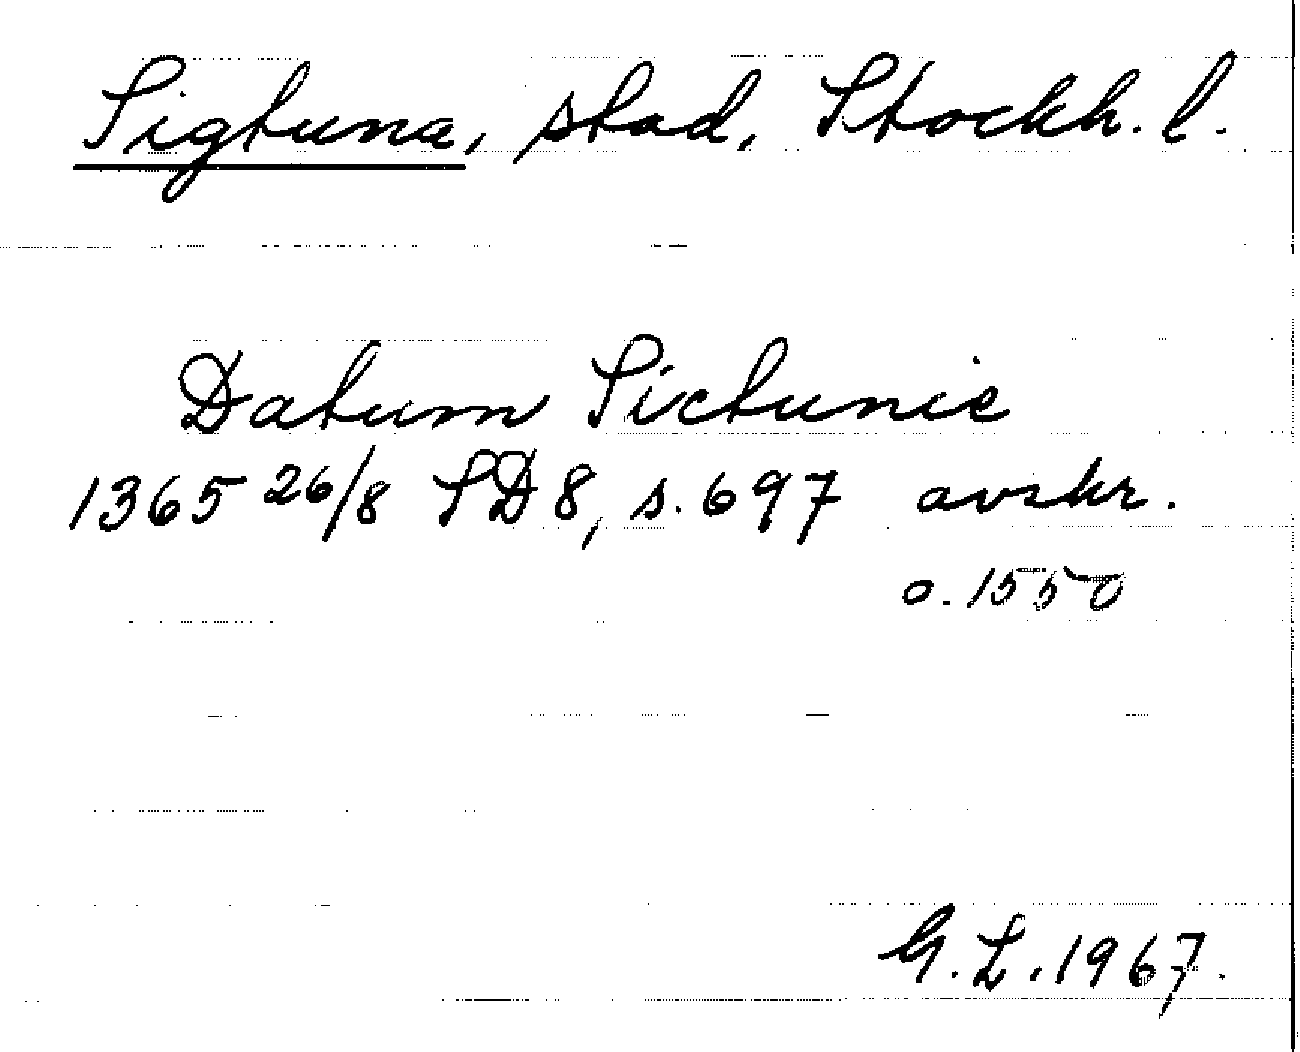 Sigtuna, stad, Stockh. l.
Datum Sictunie
1365 26/8 SD 8, s. 697 avskr.
o. 1550
G. L. 1967.